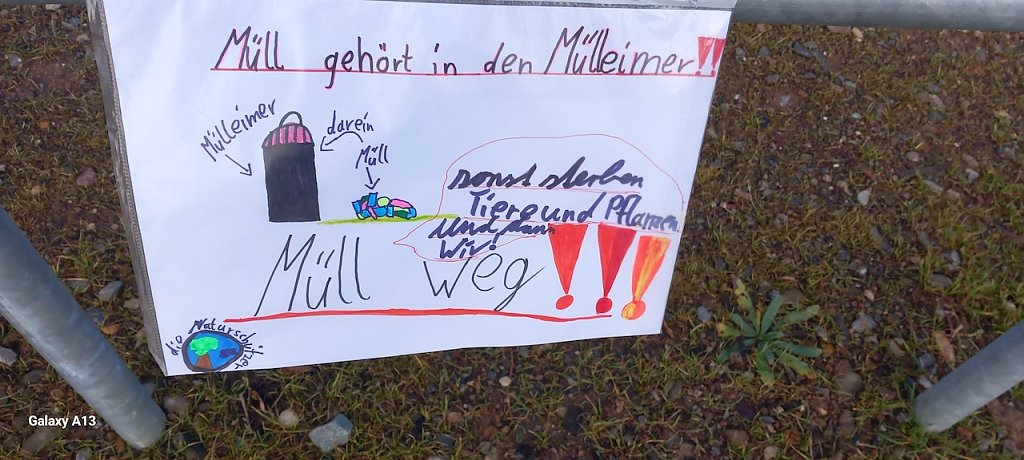 Müll gehört in den Mülleimer!!
Mülleimer
darein
Müll
sonst sterben
Tiere und Pflanzen
und dann
wir!
Müll weg!!!
die Naturschützer
Galaxy A13